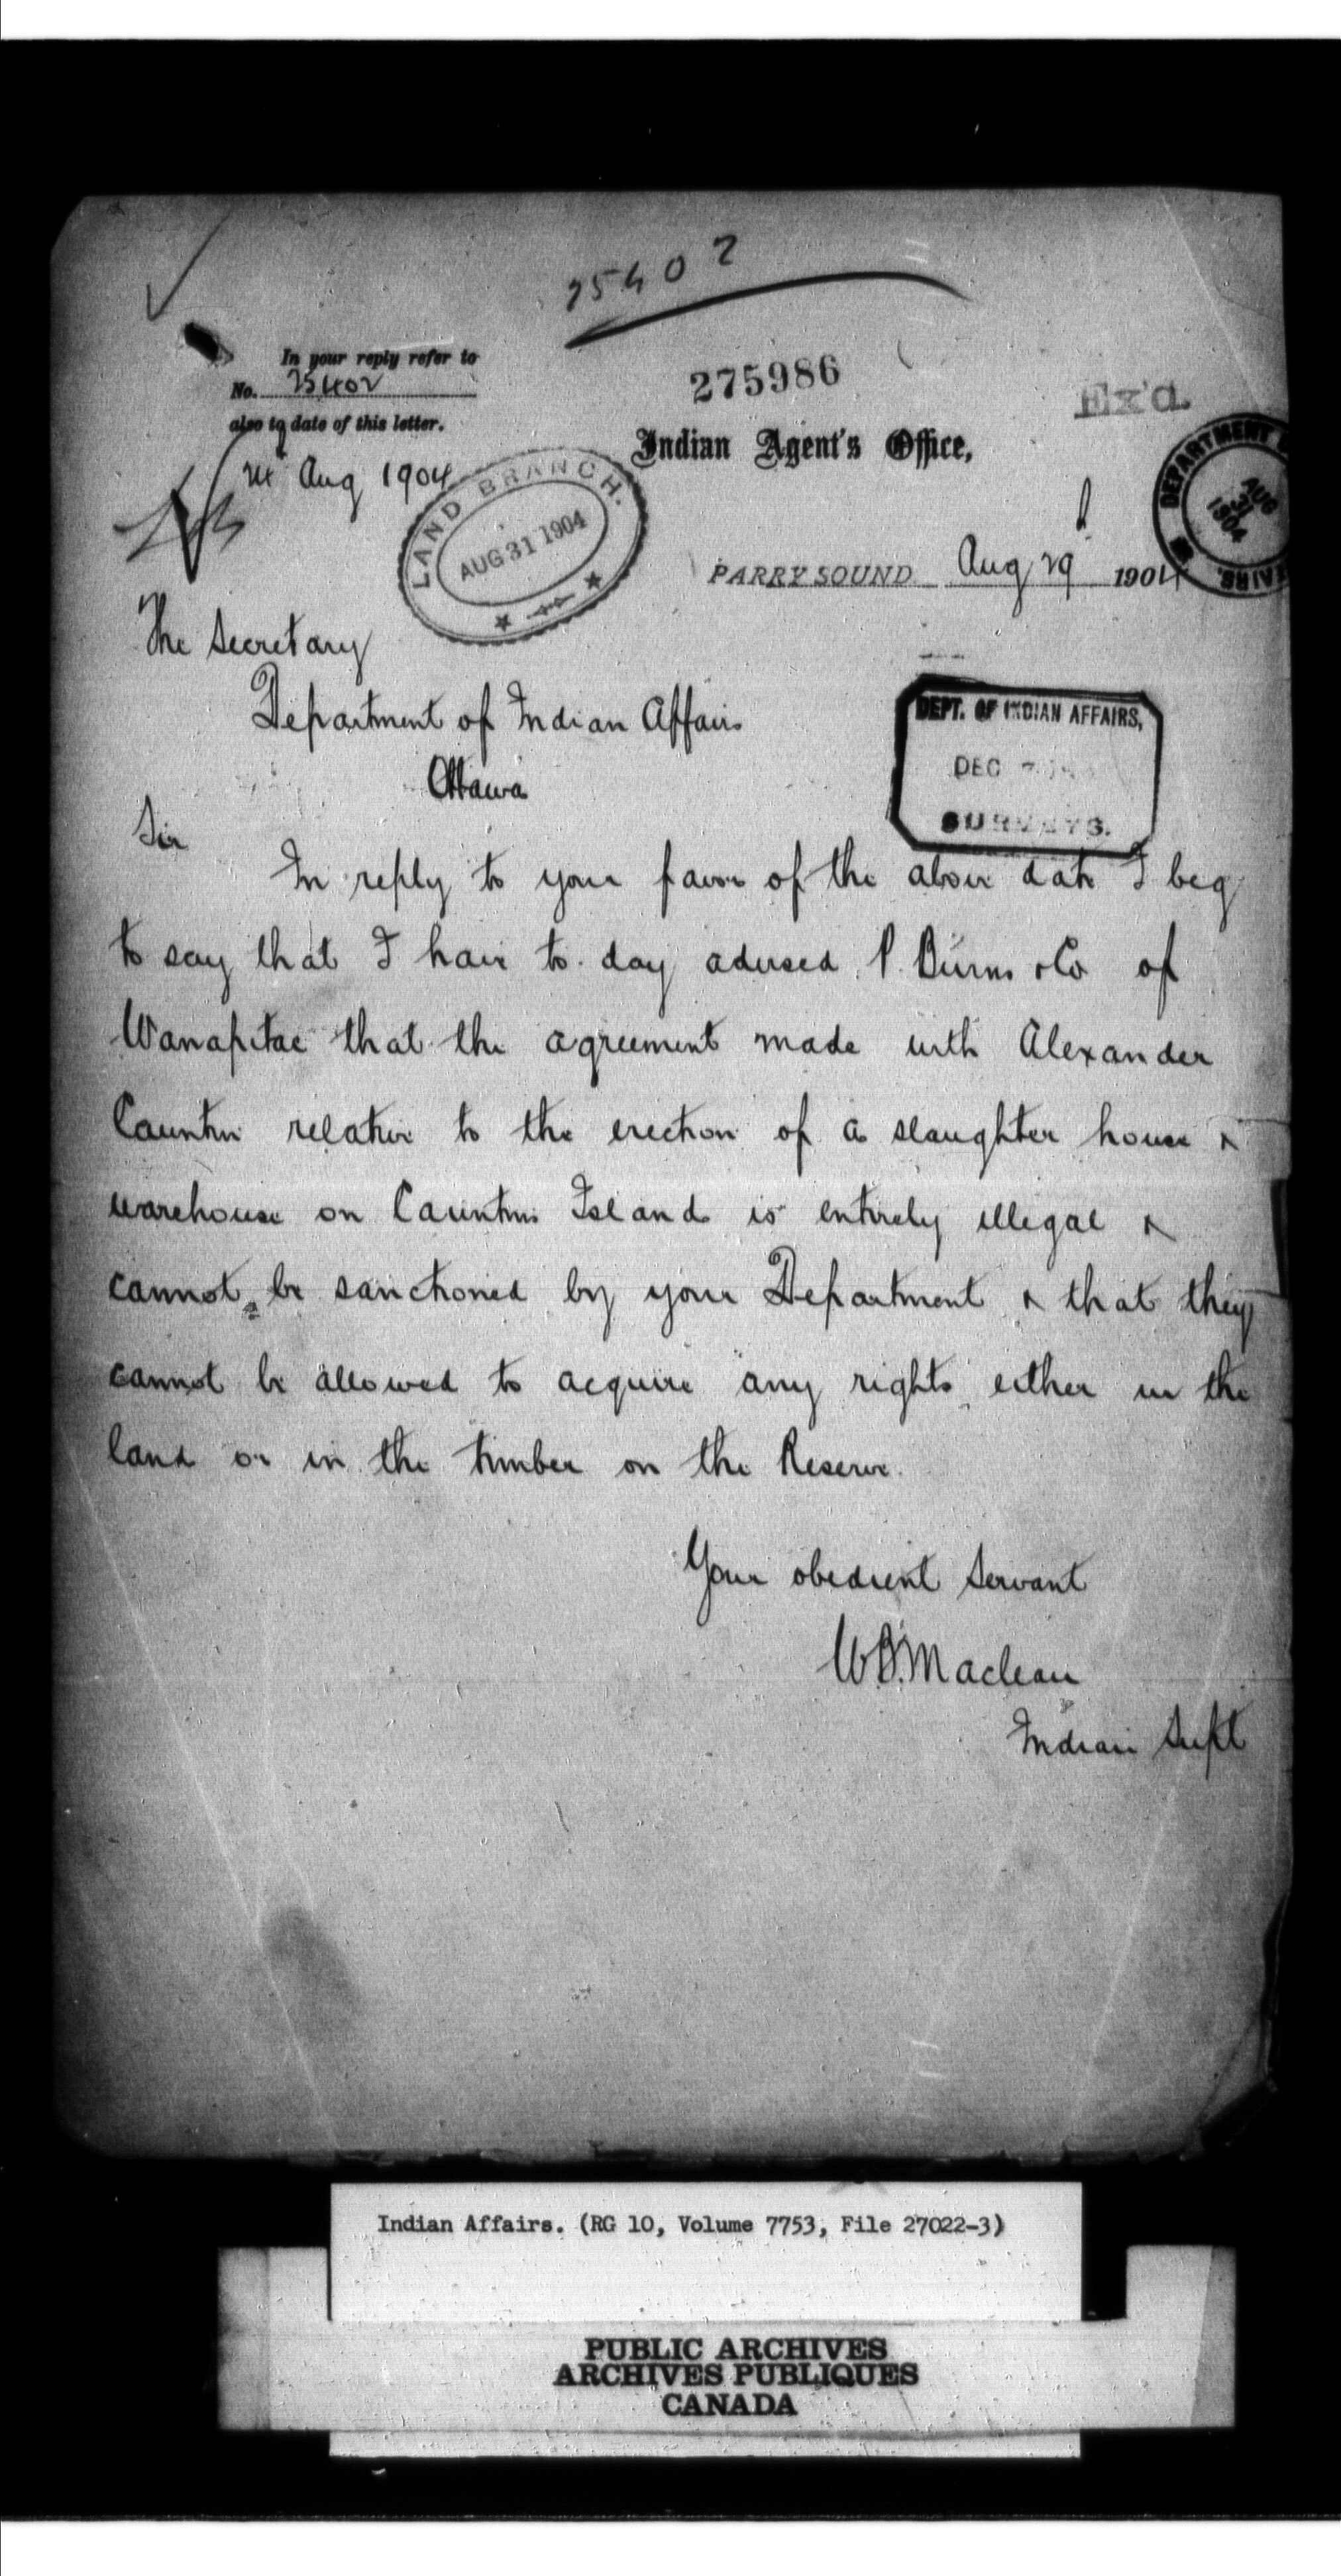 25402
In your reply refer to
No. 25402
also to date of this letter.
24 Aug 1904
275986
Ex'd.
Indian Agent's Office,
LAND BRANCH.
AUG 31 1904
DEPARTMENT
AUG 31 1904
PARRY SOUND Aug 29 1904
The Secretary
Department of Indian Affairs
Ottawa
DEPT. OF INDIAN AFFAIRS,
DEC
SURVEYS.
Sir
In reply to your favor of the above date I beg
to say that I have to day advised P. Burns & Co of
Wanapitae that the agreement made with Alexander
relative to the erection of a slaughter house &
warehouse on Island is entirely illegal &
cannot be sanctioned by your Department & that they
cannot be allowed to acquire any rights either in the
land or in the timber on the Reserve.
Your obedient Servant
W.B. Maclean
Indian Supt
Indian Affairs. (RG 10, Volume 7753, File 27022-3)
PUBLIC ARCHIVES
ARCHIVES PUBLIQUES
CANADA